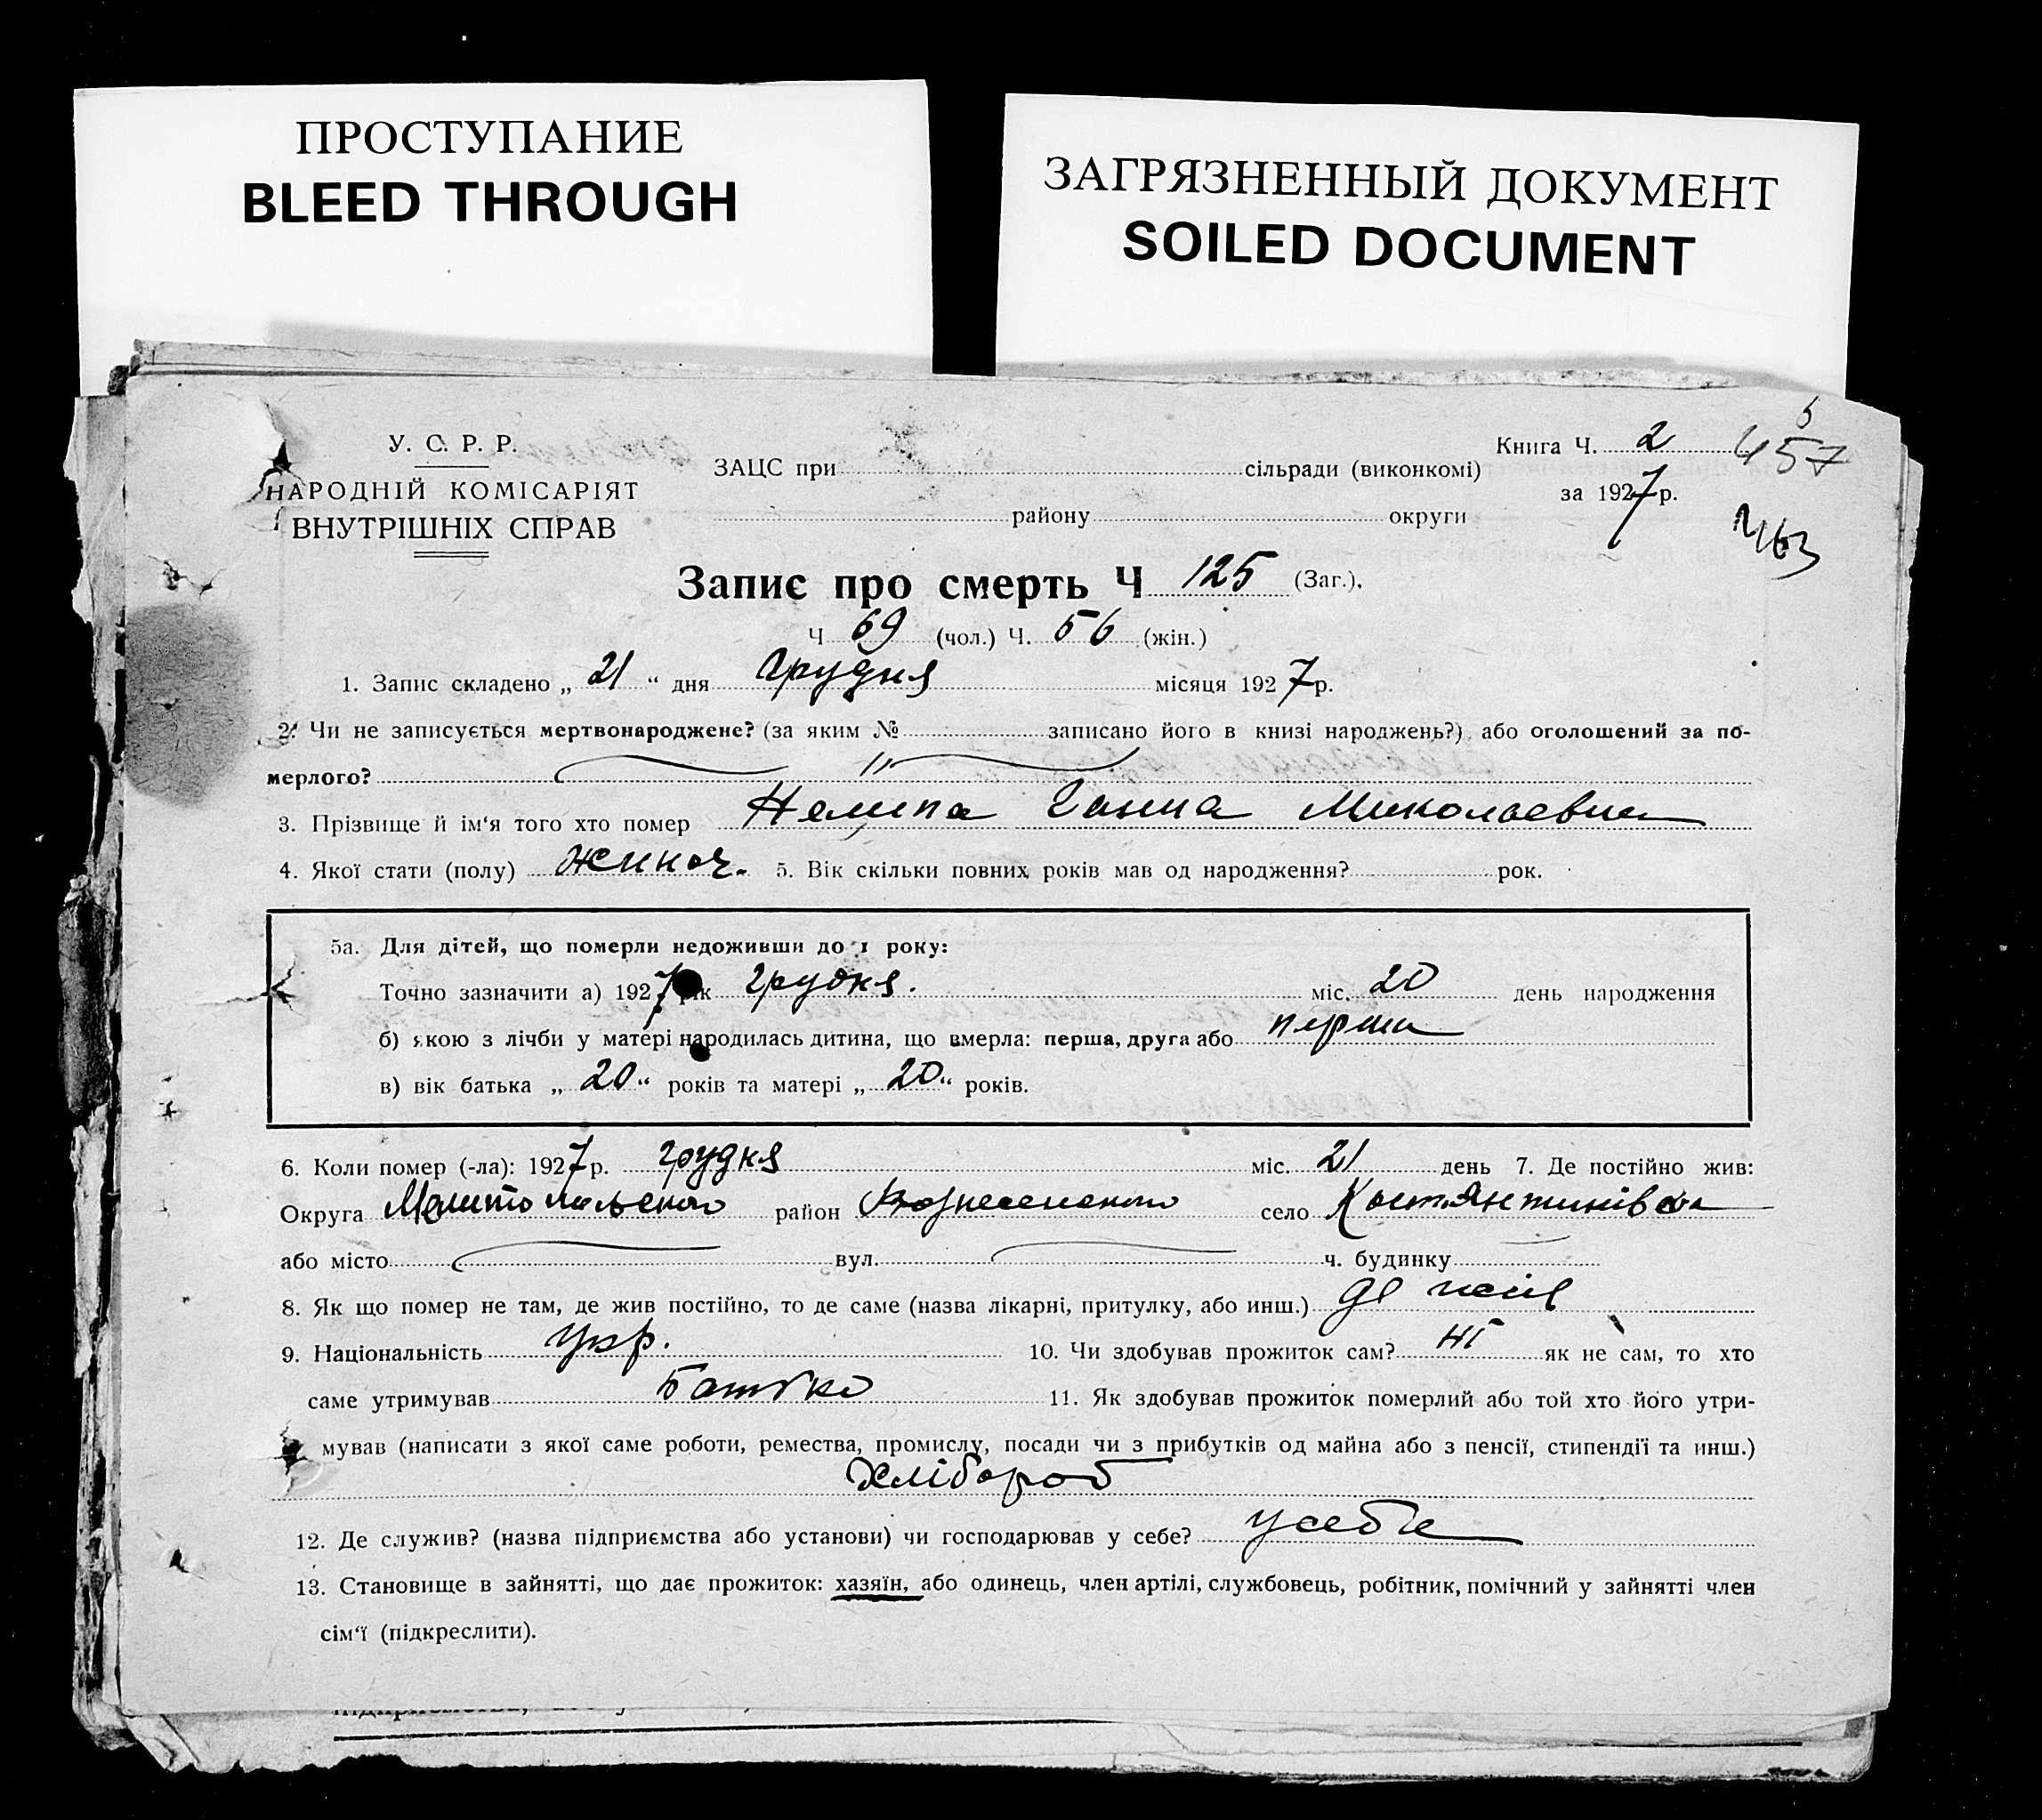 ПРОСТУПАНИЕ
BLEED THROUGH
ЗАГРЯЗНЕННЫЙ ДОКУМЕНТ
SOILED DOCUMENT
У. С. Р. Р.
НАРОДНІЙ КОМІСАРІЯТ
ВНУТРІШНІХ СПРАВ
ЗАЦС при сільради (виконкомі)
району округи
Книга Ч. 2 457
за 1927 р.
463
Запис про смерть Ч 125 (Заг.),
Ч 69 (чол.) Ч. 56 (жін.)
1. Запис складено „ 21 “ дня грудня місяця 1927 р.
2. Чи не записується мертвонароджене? (за яким № записано його в книзі народжень?) або оголошений за по-
мерлого? "
3. Прізвище й ім‘я того хто помер Нелипа Ганна Миколаевна
4. Якої стати (полу) жиноч. 5. Вік скільки повних років мав од народження? рок.
5а. Для дітей, що померли недоживши до 1 року:
Точно зазначити а) 1927 рік грудня. міс. 20 день народження
б) якою з лічби у матері народилась дитина, що вмерла: перша, друга або перша
в) вік батька „ 20 “ років та матері „ 20 “ років.
6. Коли помер (-ла): 1927 р. грудня міс. 21 день 7. Де постійно жив:
Округа Мелитопільского район Вознесенского село Костянтинівка
або місто вул. ч. будинку
8. Як що помер не там, де жив постійно, то де саме (назва лікарні, притулку, або инш.) де жив
9. Національність Укр. 10. Чи здобував прожиток сам? ні як не сам, то хто
саме утримував Батько 11. Як здобував прожиток померлий або той хто його утри-
мував (написати з якої саме роботи, ремества, промислу, посади чи з прибутків од майна або з пенсії, стипендії та инш.)
Хлібороб
12. Де служив? (назва підприємства або установи) чи господарював у себе? у себе
13. Становище в зайнятті, що дає прожиток: хазяїн, або одинець, член артілі, службовець, робітник, помічний у зайнятті член
сім‘ї (підкреслити).